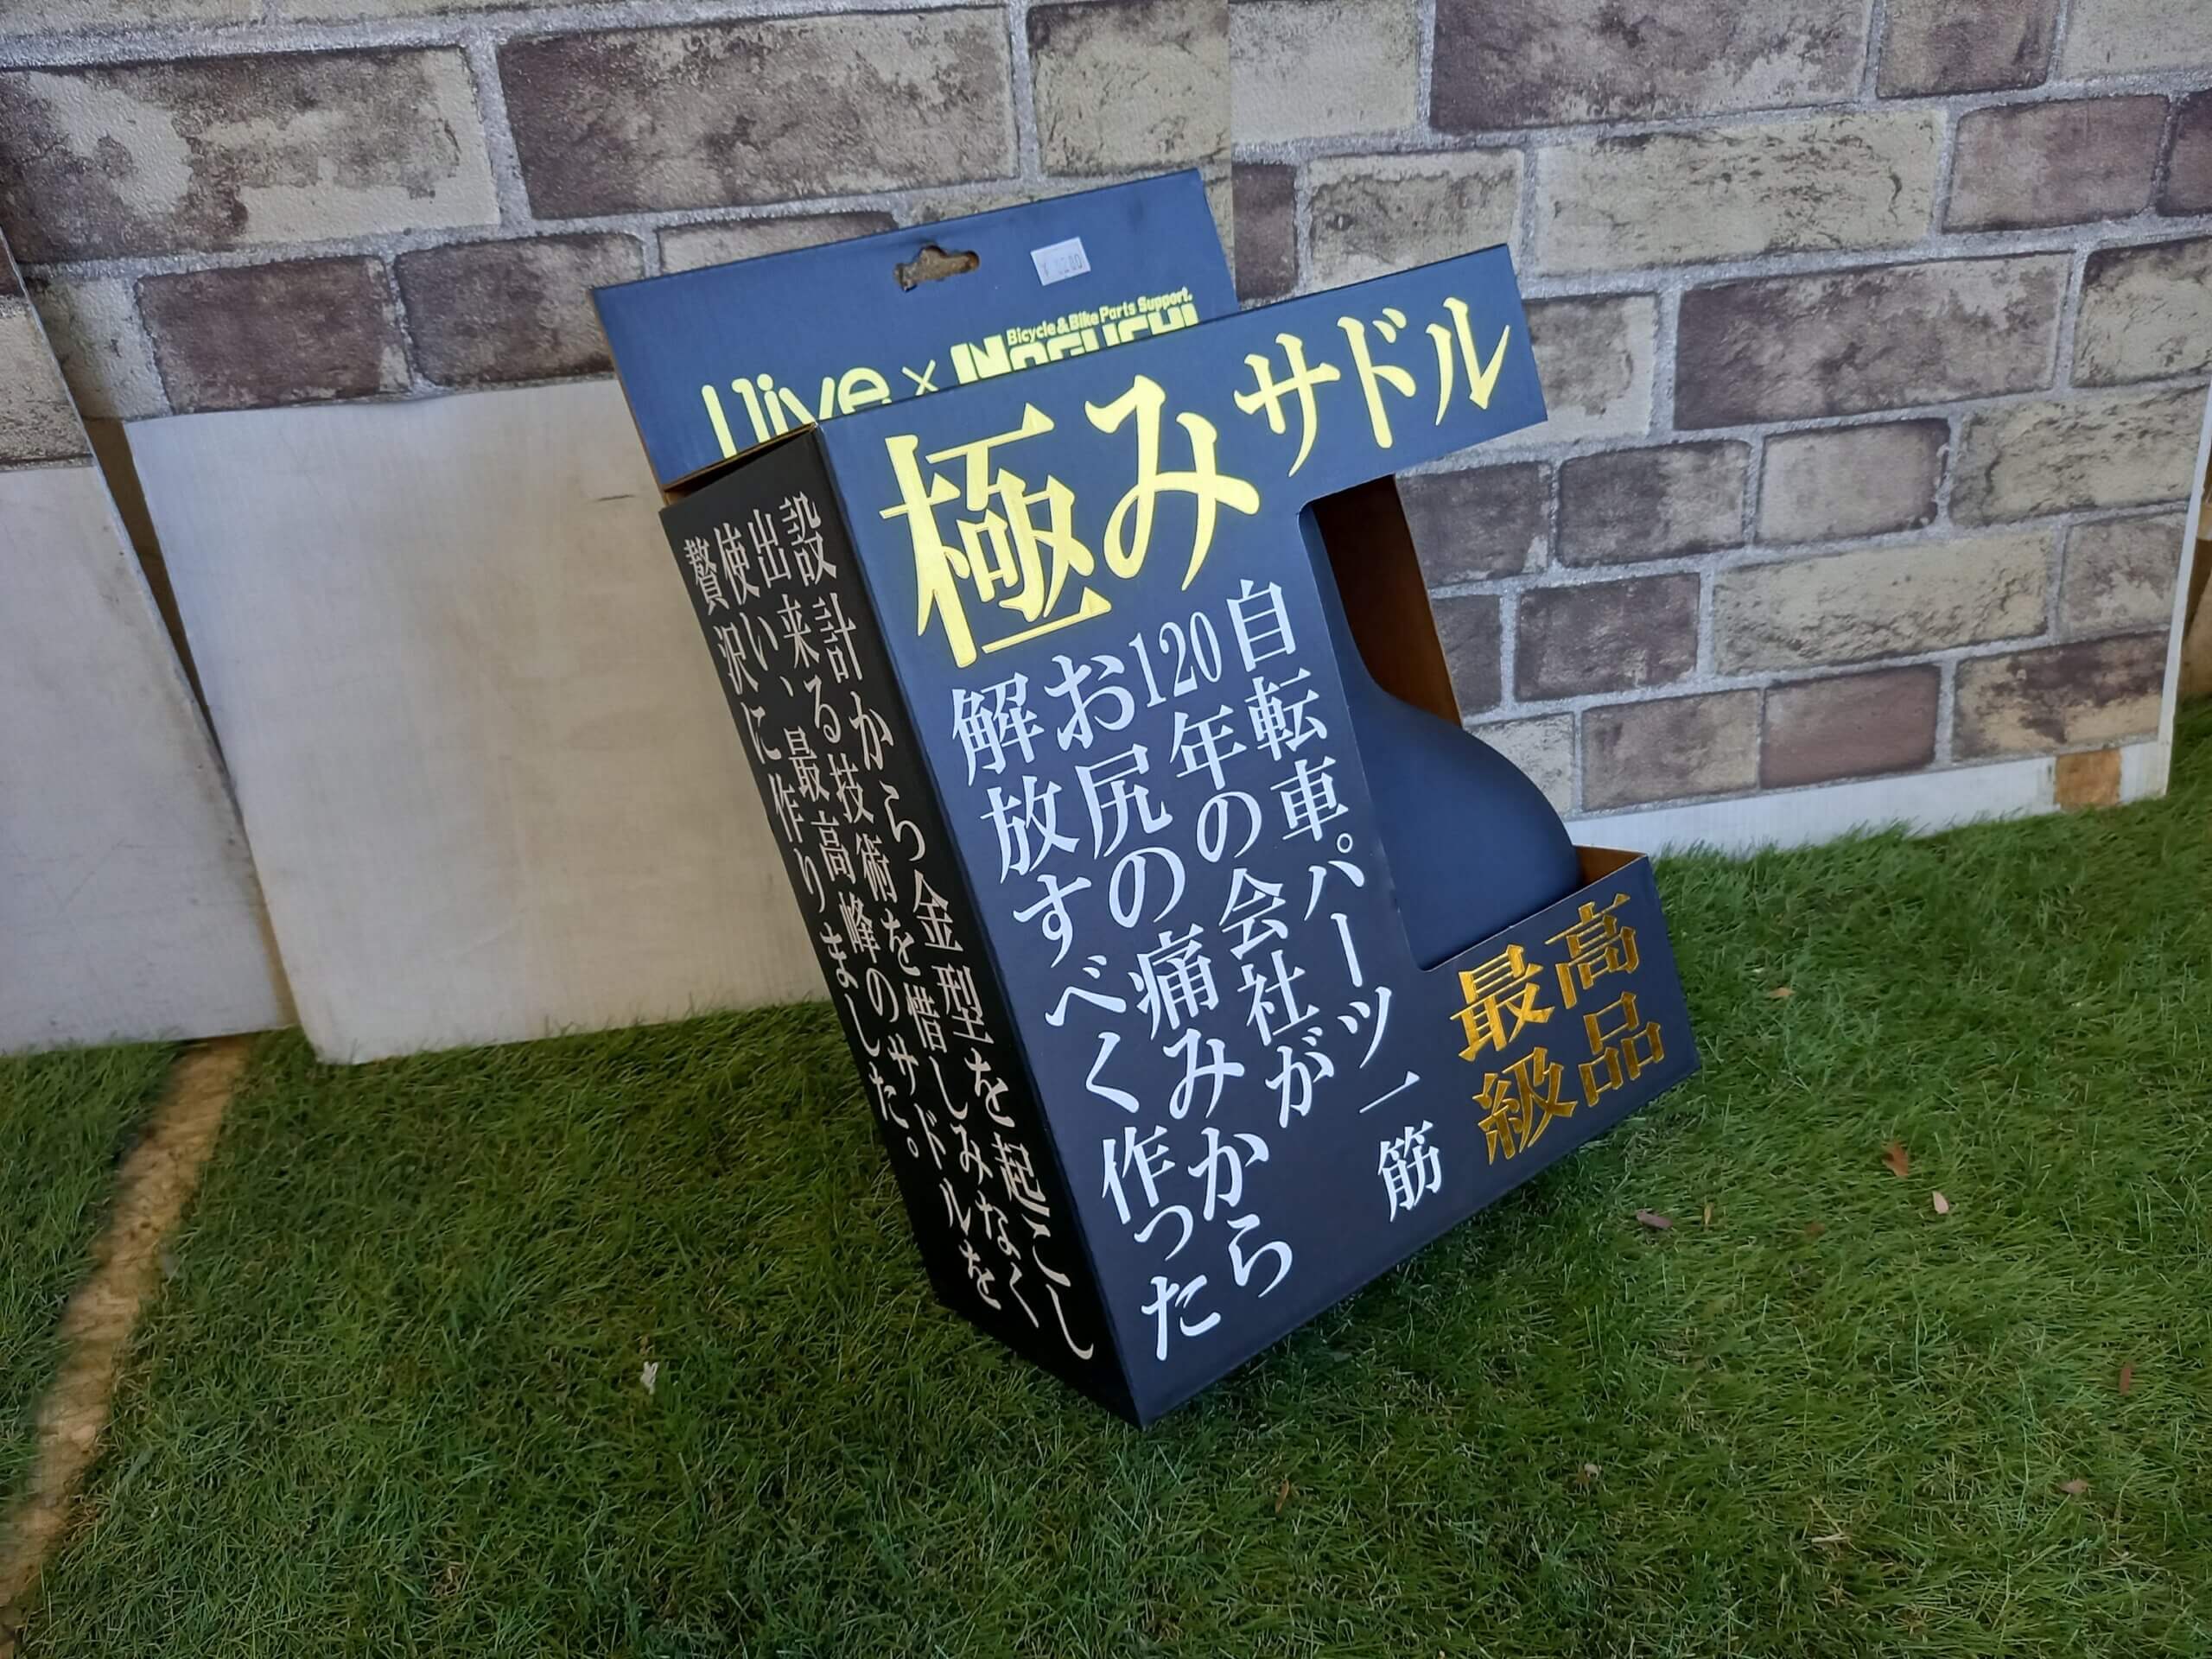 Bicycle & Bike Parts Support.
×
NOGUCHI
極みサドル
自転車パーツ一筋
120年の会社が
お尻の痛みから
解放すべく作った
最高
級品
設計から金型を起こし
出来る技術を惜しみなく
使い、最高峰のサドルを
贅沢に作りました。